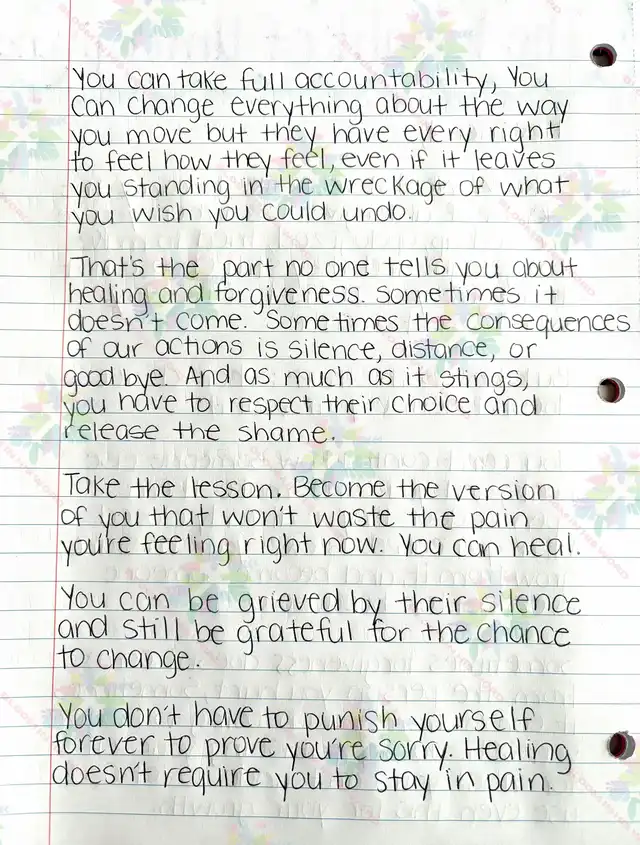 You can take full accountability, You
can change everything about the way
you move but they have every right
to feel how they feel, even if it leaves
you standing in the wreckage of what
you wish you could undo.
That's the part no one tells you about
healing and forgiveness. Sometimes it
doesn't come. Sometimes the consequences
of our actions is silence, distance, or
goodbye. And as much as it stings,
you have to respect their choice and
release the shame.
Take the lesson. Become the version
of you that won't waste the pain
you're feeling right now. You can heal.
You can be grieved by their silence
and still be grateful for the chance
to change.
You don't have to punish yourself
forever to prove you're sorry. Healing
doesn't require you to stay in pain.